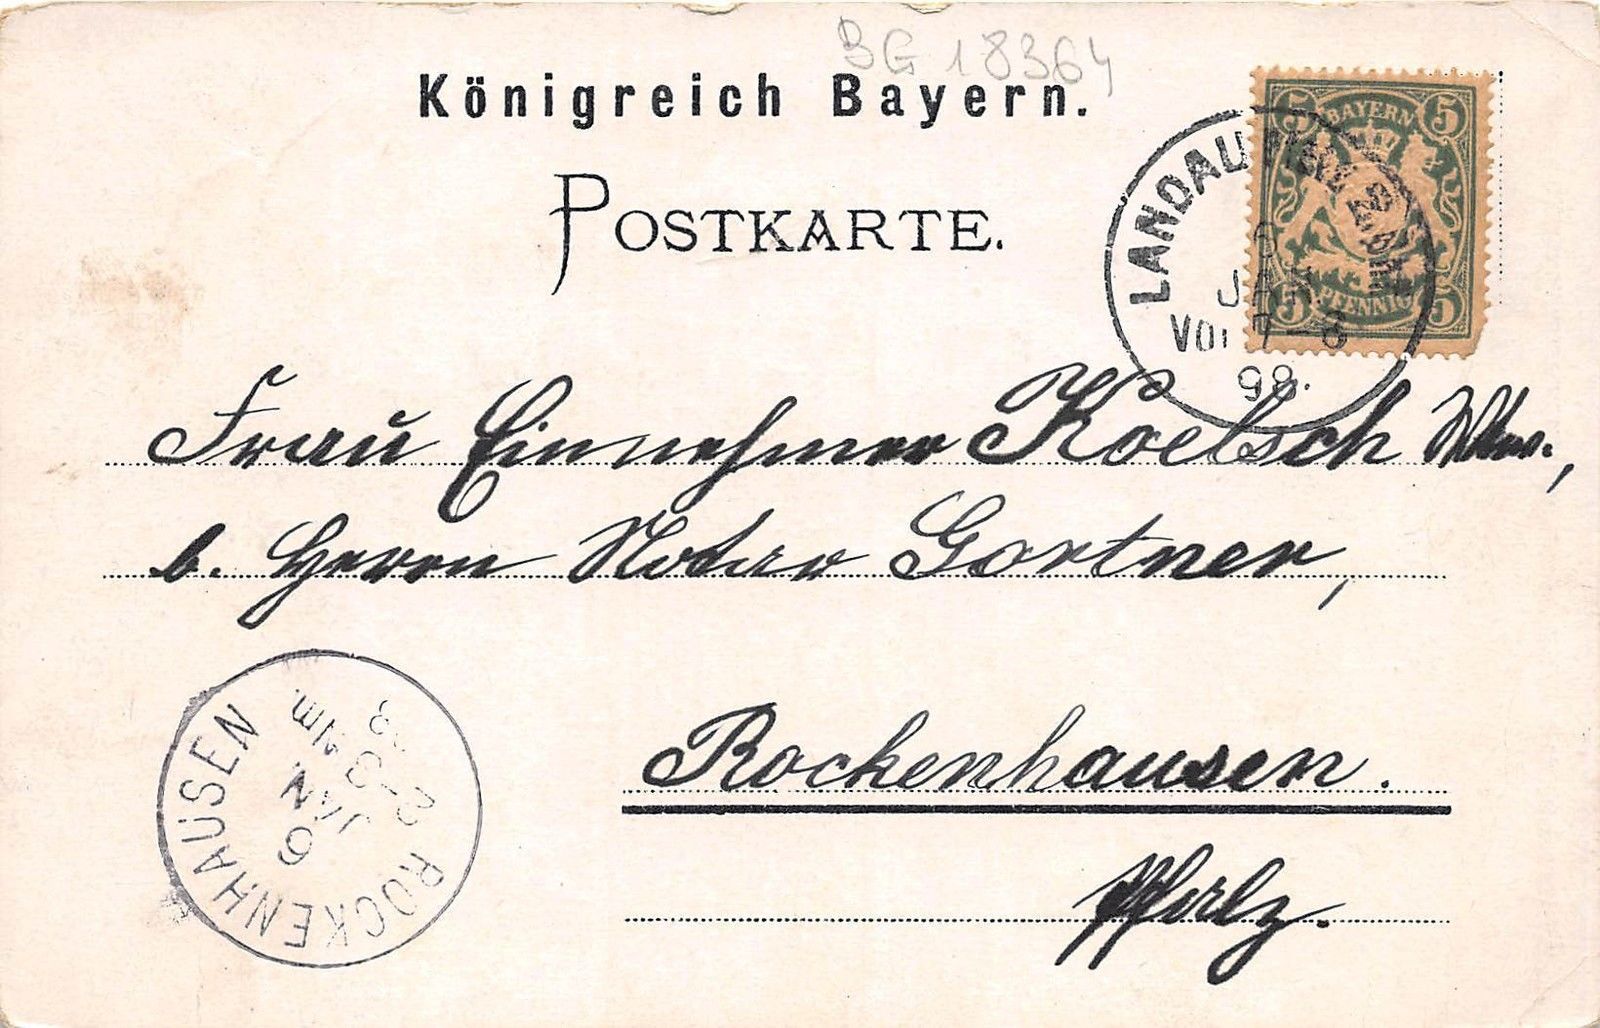 BG 18364
Königreich Bayern.
POSTKARTE.
5 BAYERN 5
5 PFENNIG 5
LANDAU
6
JAN
VOR 7-8
98.
Frau Einnehmer Koelsch Wtw.,
b. Herrn Notar Gortner,
Rockenhausen.
Pfalz.
ROCKENHAUSEN
6
JAN
2-3 Nm.
98